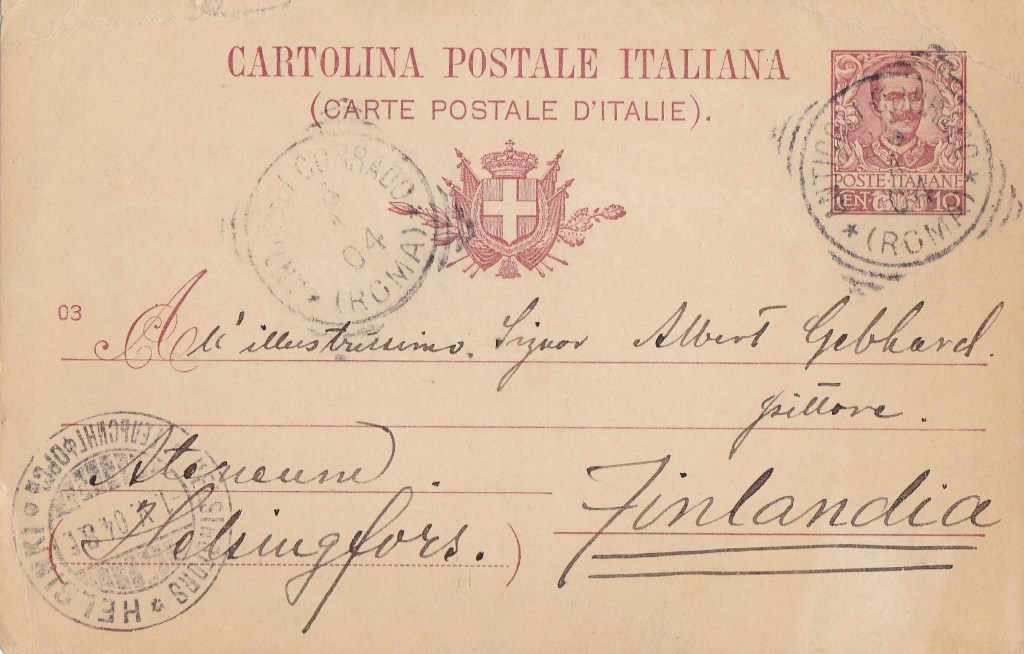 CARTOLINA POSTALE ITALIANA
(CARTE POSTALE D'ITALIE).
POSTE·ITALIANE
CEN 10
CORRADO
04
* (ROMA) *
* (ROMA) *
03
All'illustrissimo. Signor Albert Gebhard.
pittore.
Ateneum
Helsingfors.
Finlandia
HELSINKI * HELSINGFORS
ГЕЛЬСИНГФОРСЪ
04